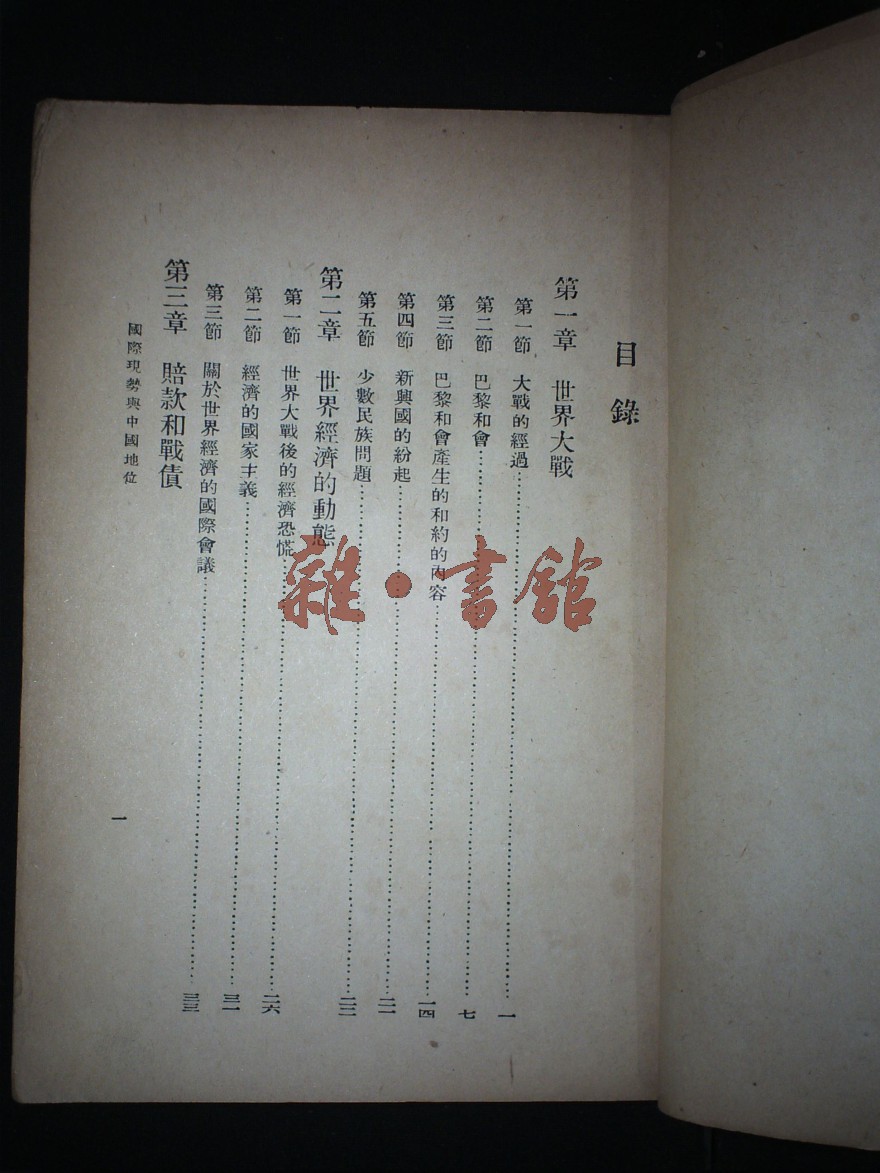 目錄
第一章 世界大戰
第一節 大戰的經過……一
第二節 巴黎和會……七
第三節 巴黎和會產生的和約的內容……一四
第四節 新興國的紛起……二一
第五節 少數民族問題……
第二章 世界經濟的動態
第一節 世界大戰後的經濟恐慌……二六
第二節 經濟的國家主義……三一
第三節 關於世界經濟的國際會議……三三
第三章 賠款和戰債
國際現勢與中國地位
一
雜·書館